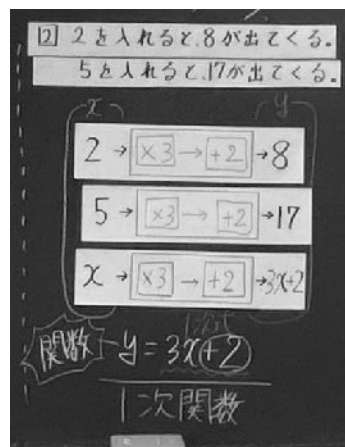 2 2を入れると、8が出てくる。
5を入れると、17が出てくる。
x y
2→ ×3 → +2 →8
5→ ×3 → +2 →17
x→ ×3 → +2 →3x+2
1次式
関数 y=3x+2
1次関数